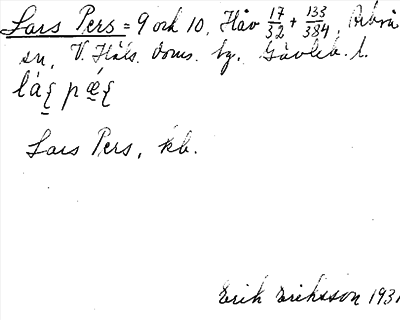 Lars Pers = 9 och 10, Håv 17/32 + 133/384, Arbrå
sn, V. Häls. doms. hg. Gävleb. l.
Lars Pers, kb.
Erik Eriksson 1931